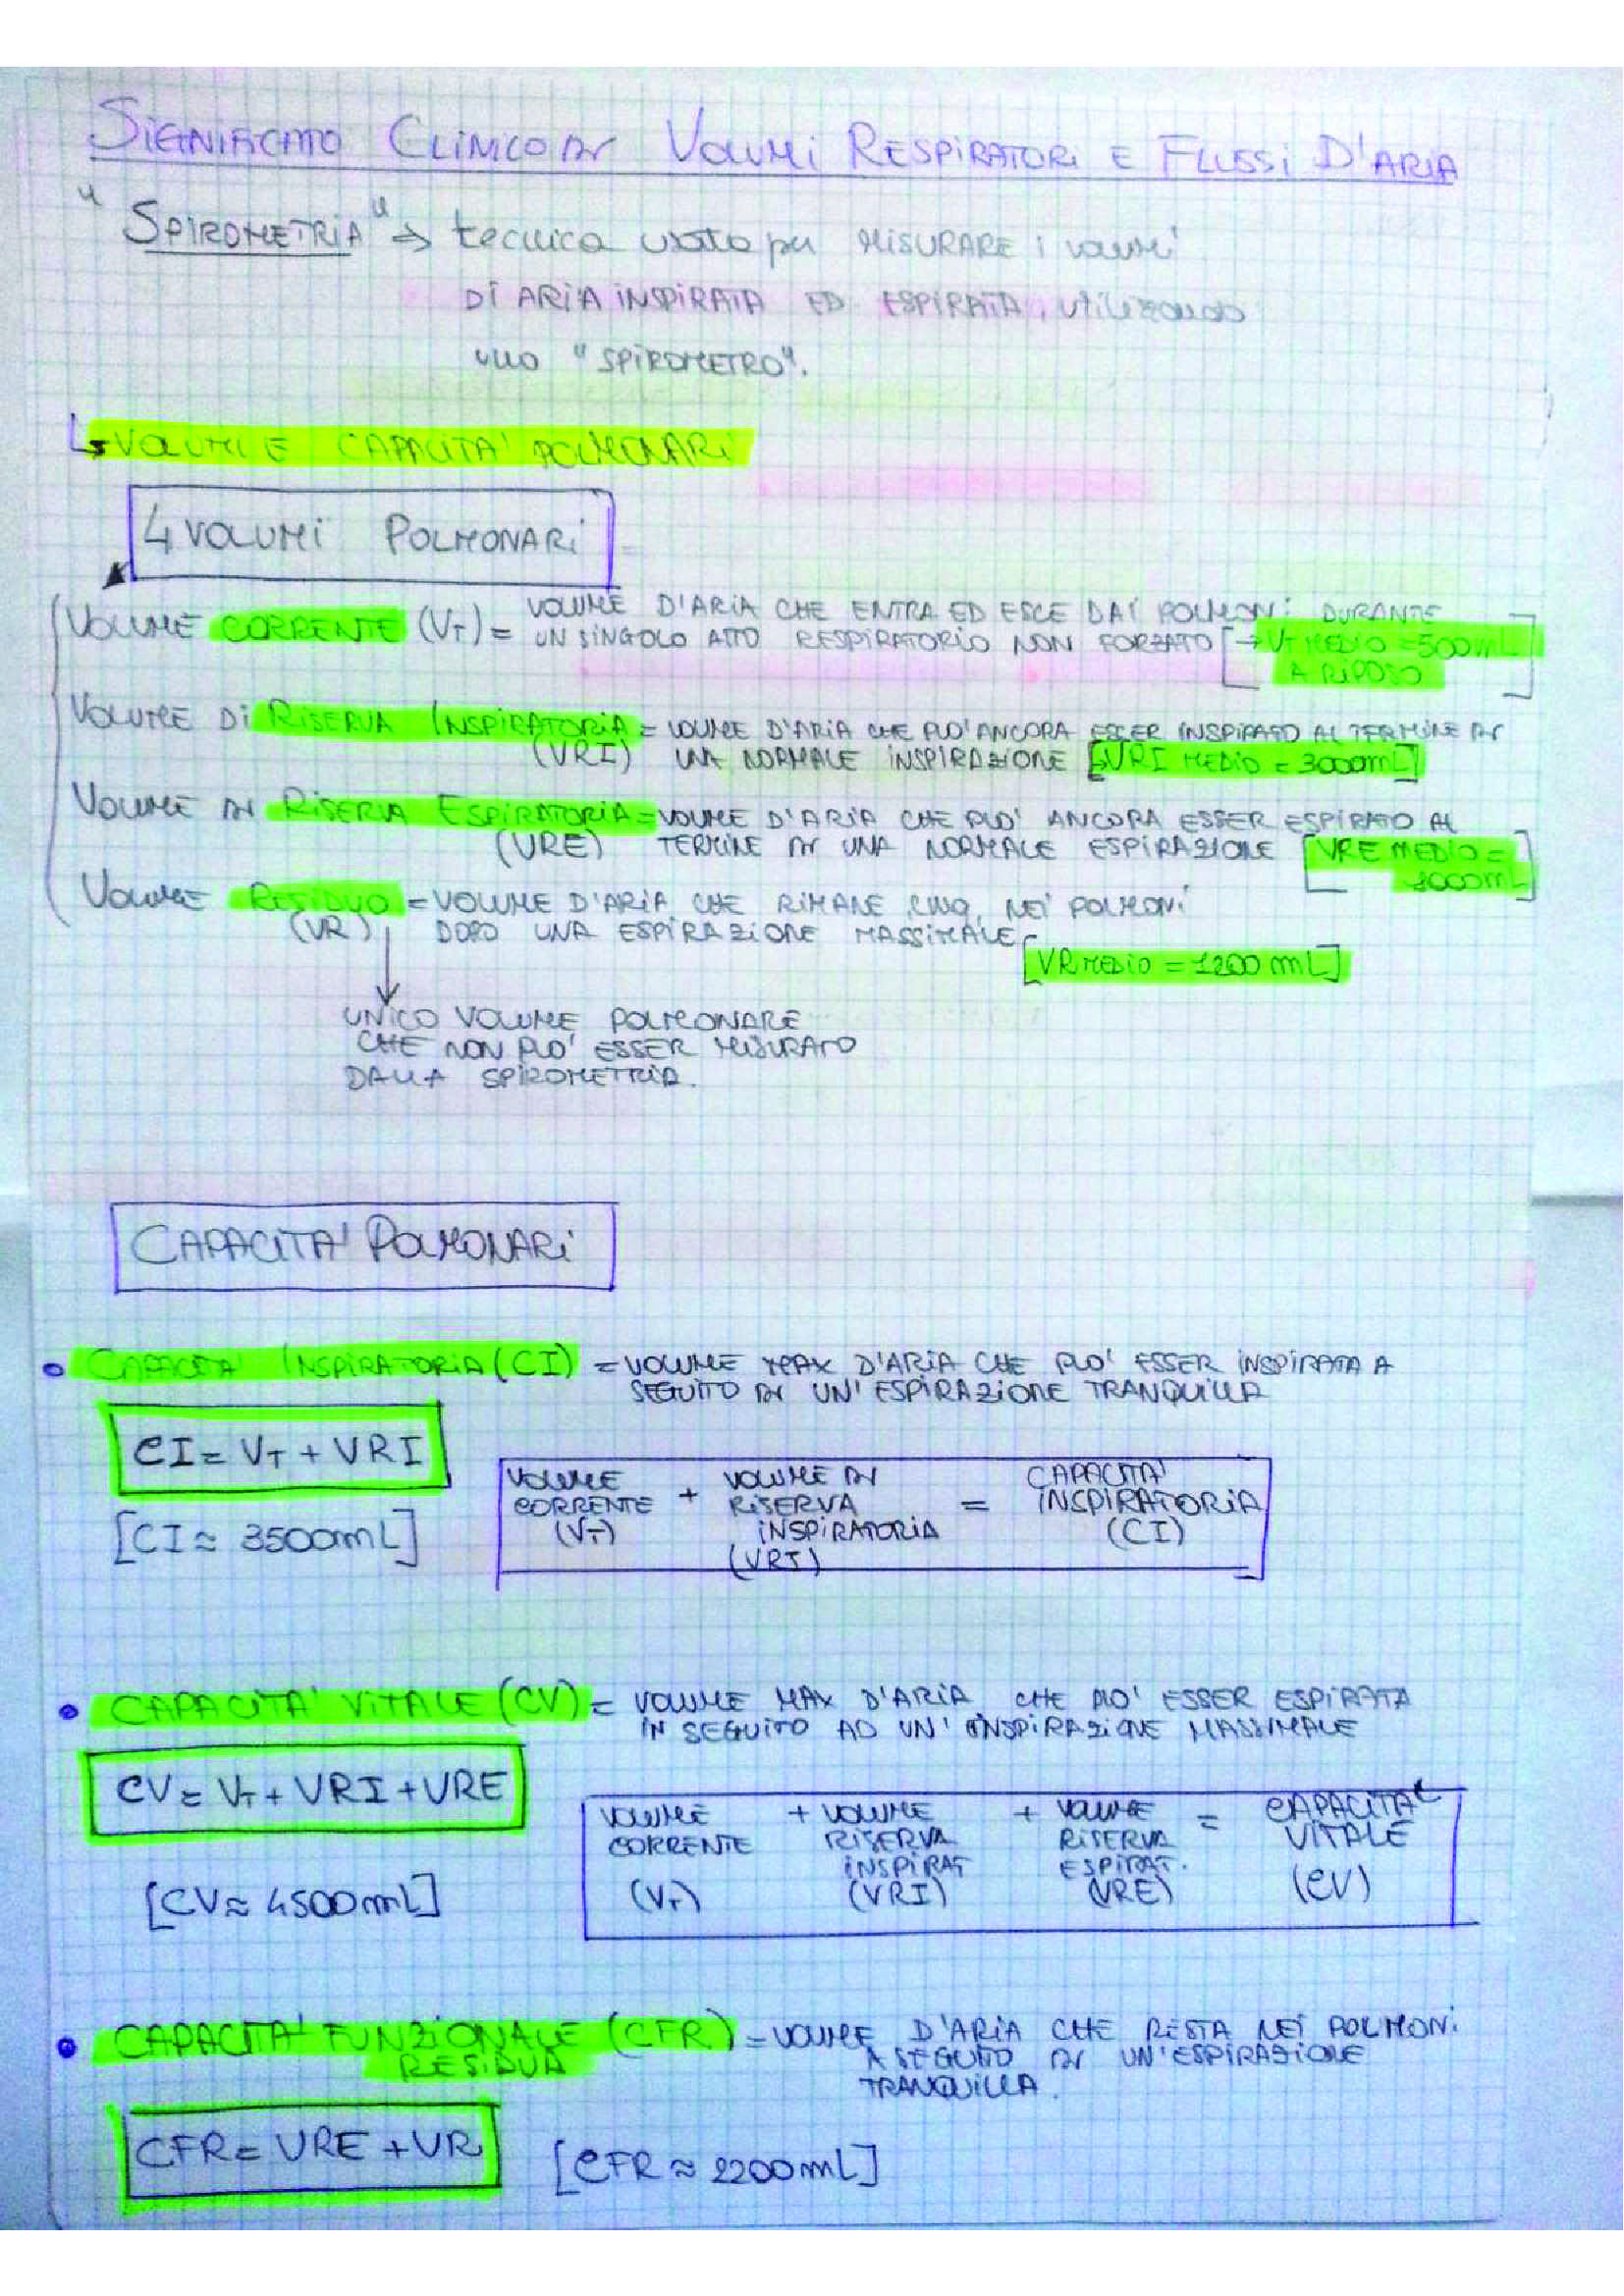 SIGNIFICATO CLINICO DI VOLUMI RESPIRATORI E FLUSSI D'ARIA
"SPIROMETRIA" → tecnica usata per MISURARE i volumi
DI ARIA INSPIRATA ED ESPIRATA, utilizzando
uno "SPIROMETRO".
↳ VOLUMI E CAPACITA' POLMONARI
4 VOLUMI POLMONARI
VOLUME CORRENTE (VT) = VOLUME D'ARIA CHE ENTRA ED ESCE DAI POLMONI DURANTE
UN SINGOLO ATTO RESPIRATORIO NON FORZATO [→ VT MEDIO = 500mL
A RIPOSO]
VOLUME DI RISERVA INSPIRATORIA = VOLUME D'ARIA CHE PUO' ANCORA ESSER INSPIRATO AL TERMINE DI
(VRI) UNA NORMALE INSPIRAZIONE [↳VRI MEDIO = 3000mL]
VOLUME DI RISERVA ESPIRATORIA = VOLUME D'ARIA CHE PUO' ANCORA ESSER ESPIRATO AL
(VRE) TERMINE DI UNA NORMALE ESPIRAZIONE [VRE MEDIO =
1000mL]
VOLUME RESIDUO = VOLUME D'ARIA CHE RIMANE CMQ. NEI POLMONI
(VR) DOPO UNA ESPIRAZIONE MASSIMALE
[VR MEDIO = 1200 mL]
UNICO VOLUME POLMONARE
CHE NON PUO' ESSER MISURATO
DALLA SPIROMETRIA.
CAPACITA' POLMONARI
• CAPACITA' INSPIRATORIA (CI) = VOLUME MAX D'ARIA CHE PUO' ESSER INSPIRATA A
SEGUITO DI UN'ESPIRAZIONE TRANQUILLA
CI = VT + VRI
[CI ≈ 3500mL]
VOLUME CORRENTE (VT) + VOLUME DI RISERVA INSPIRATORIA (VRI) = CAPACITA' INSPIRATORIA (CI)
• CAPACITA' VITALE (CV) = VOLUME MAX D'ARIA CHE PUO' ESSER ESPIRATA
IN SEGUITO AD UN'INSPIRAZIONE MASSIMALE
CV = VT + VRI + VRE
[CV ≈ 4500mL]
VOLUME CORRENTE (VT) + VOLUME RISERVA INSPIRAT (VRI) + VOLUME RISERVA ESPIRAT. (VRE) = CAPACITA' VITALE (CV)
• CAPACITA' FUNZIONALE (CFR) = VOLUME D'ARIA CHE RESTA NEI POLMONI
RESIDUA A SEGUITO DI UN'ESPIRAZIONE
TRANQUILLA.
CFR = VRE + VR
[CFR ≈ 2200mL]